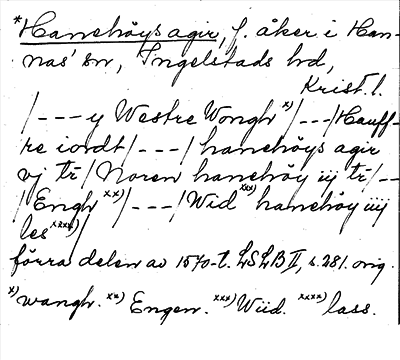 *Hanehöys agir, f. åker i Han-
nas' sn, Ingelstads hd,
Krist. l.
/---y Westre Wongh x)/---/Hauff-
re iordt/---/hanehöys agir
vj tr/Noren hanehöy iij tr/--
/Engh xx)/---/Wid xxx) hanehöy iiij
les xxxx)/
förra delen av 1570-t. LSLB II, s. 281. orig.
x) wangh. xx) Engen. xxx) Wiid. xxxx) lass.